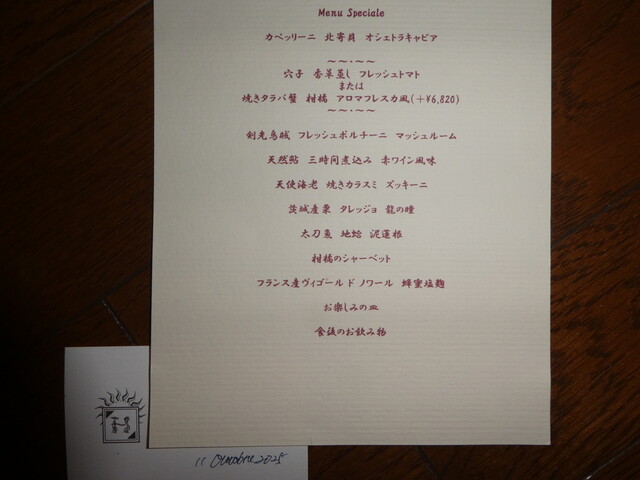 Menu Speciale
カペッリーニ 北寄貝 オシェトラキャビア
～～・～～
穴子 香草蒸し フレッシュトマト
または
焼きタラバ蟹 柑橘 アロマフレスカ風(+¥6,820)
～～・～～
剣先烏賊 フレッシュポルチーニ マッシュルーム
天然鮎 三時間煮込み 赤ワイン風味
天使海老 焼きカラスミ ズッキーニ
茨城産栗 タレッジョ 龍の瞳
太刀魚 地蛤 泥蓮根
柑橘のシャーベット
フランス産ヴィゴール ド ノワール 蜂蜜塩麹
お楽しみの皿
食後のお飲み物
11 Ottobre 2025